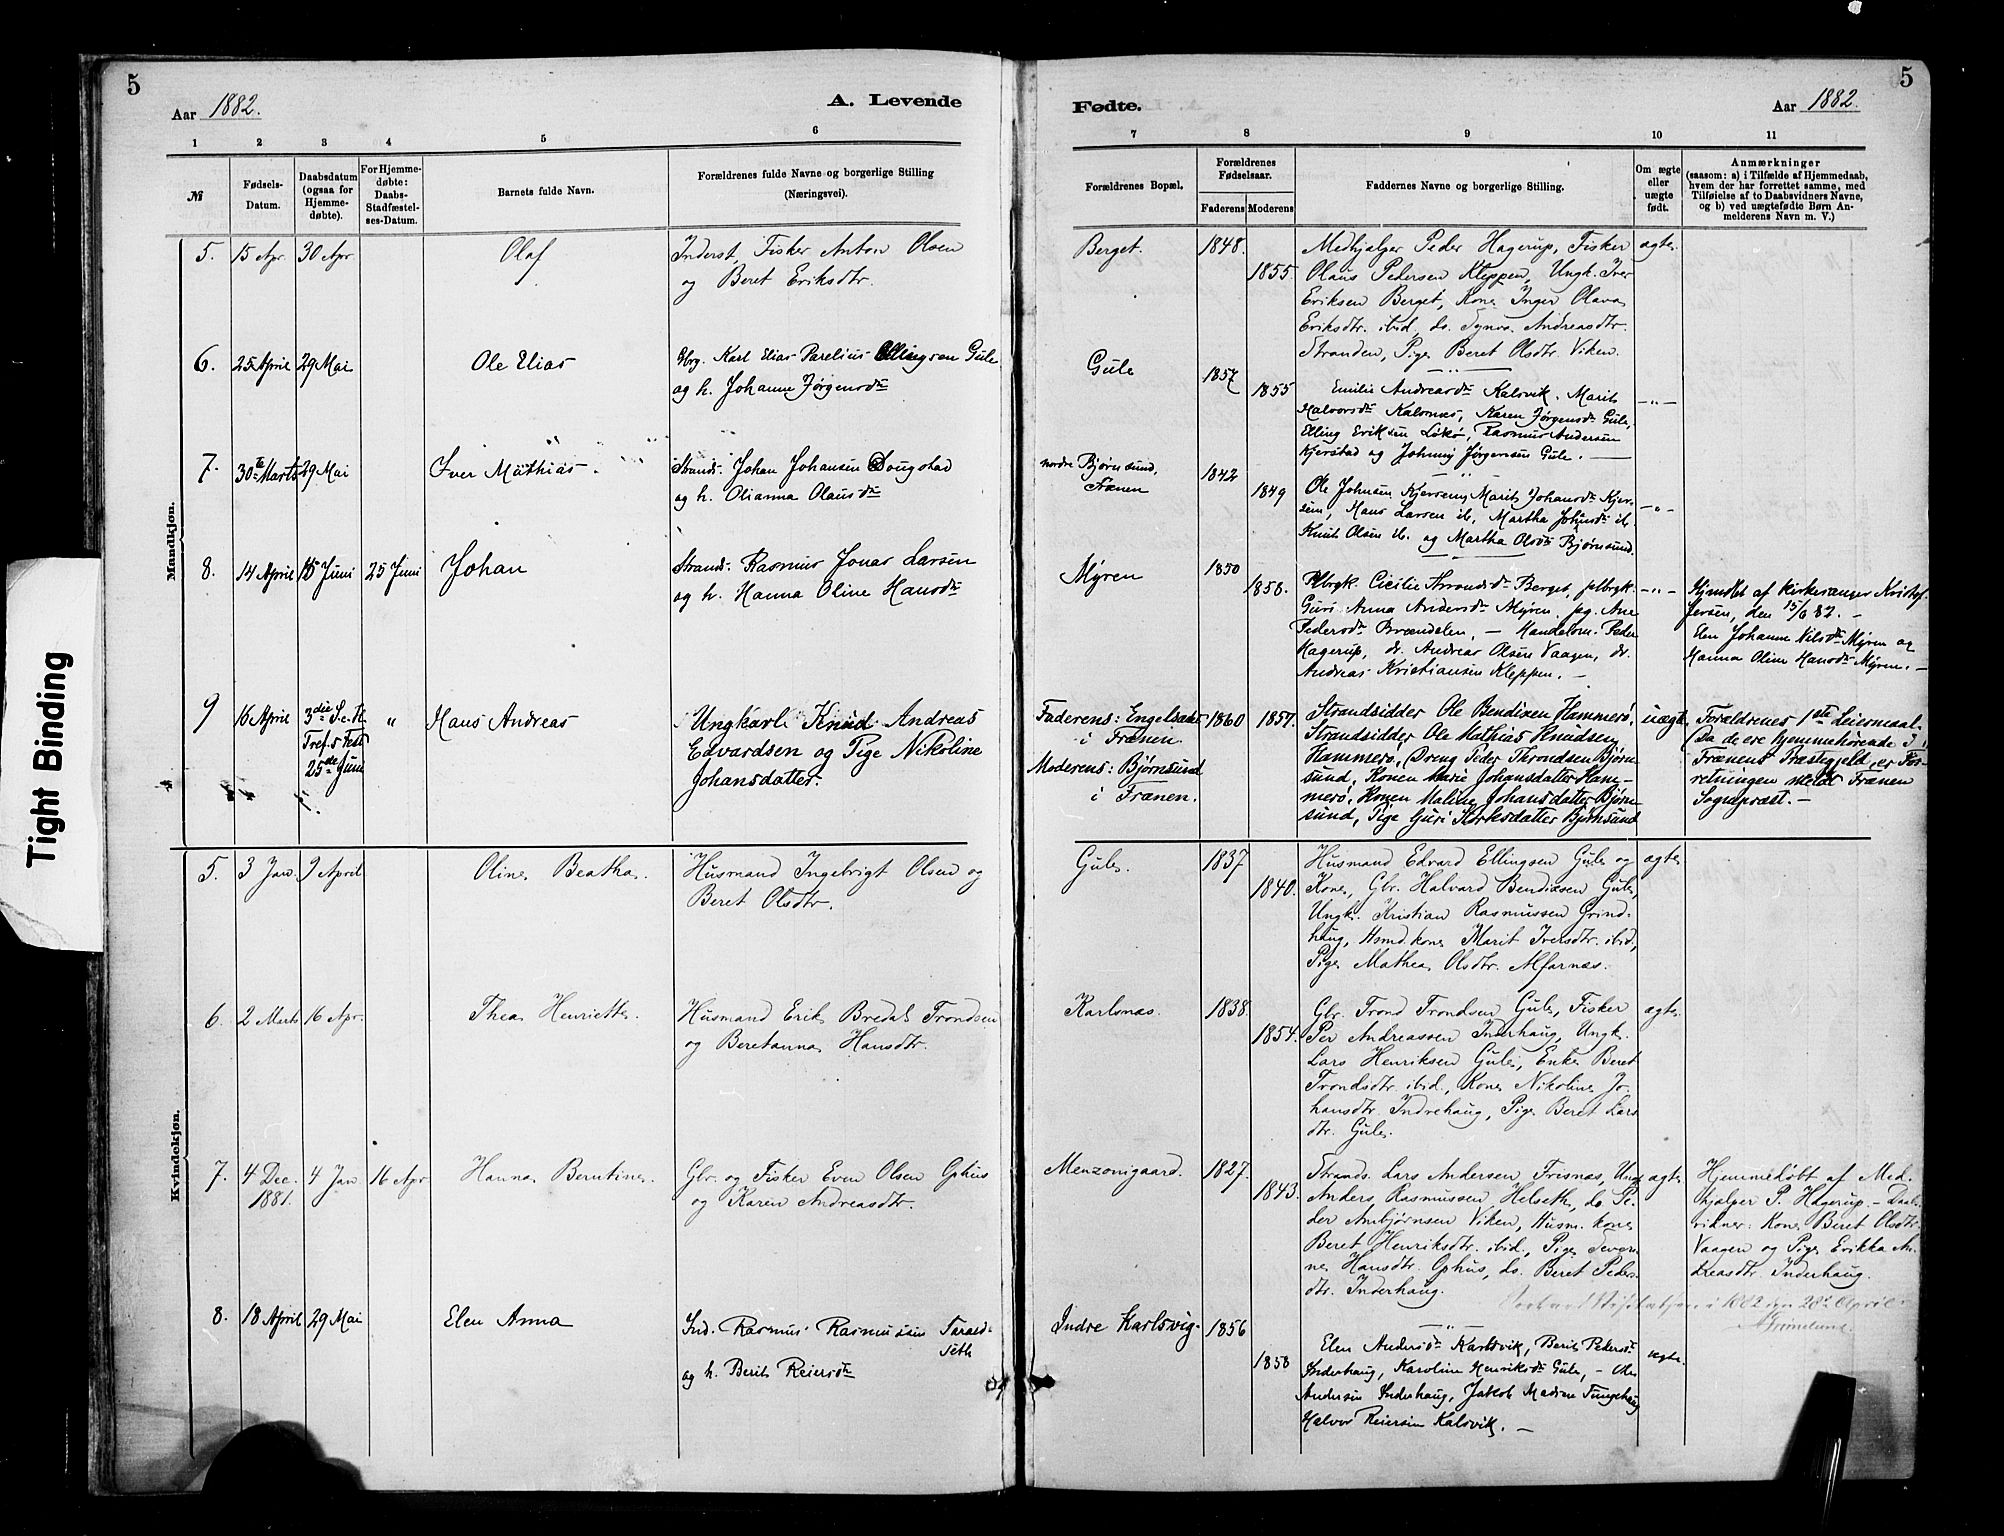 5
5
Aar 1882.
A. Levende
Fødte.
Aar 1882.
1 2 3 4 5 6
7 8 9 10 11
№
Fødsels-
Datum.
Daabsdatum
(ogsaa for
Hjemme-
døbte).
For Hjemme-
døbte:
Daabs-
Stadfæstel-
ses-Datum.
Barnets fulde Navn.
Forældrenes fulde Navne og borgerlige Stilling
(Næringsvei).
Forældrenes Bopæl.
Forældrenes
Fødselsaar.
Faderens Moderens
Faddernes Navne og borgerlige Stilling.
Om ægte
eller
uægte
født.
Anmærkninger
(saasom: a) i Tilfælde af Hjemmedaab,
hvem der har forrettet samme, med
Tilføielse af to Daabsvidners Navne,
og b) ved uægtefødte Børn An-
melderens Navn m. V.)
Mandkjøn.
5. 15 Apr. 30 Apr. Olaf
Inderst, Fisker Anton Olsen
og Beret Eriksdtr.
Berget. 1848. 1855.
Medhjælper Peder Hagerup, Fisker
Olaus Pedersen Kleppen, Ungk. Iver
Eriksen Berget, Kone Inger Olava
Eriksdtr. ibid, do. Synve Andreasdtr.
Stranden, Pige Beret Olsdtr. Viken.
ægte.
6. 25 April 29 Mai Ole Elias
Gbrg. Karl Elias Parelius Ellingsen Gule
og h. Johanne Jørgensdtr
Gule 1857 1855
Emilie Andreasdtr Kalsvik. Marit
Halvorsdtr Kalsnæs, Karen Jørgensdtr Gule,
Elling Eriksen Løkø, Rasmus Andersen
Kjerstad og Johnny Jørgensen Gule. —
—„—
7. 30te Marts 29 Mai Iver Mathias.
Strands. Johan Johansen Sougstad
og h. Olianna Olausdtr
nordre Bjørnsund,
Frænen
1842 1849
Ole Johnsen Kjørsem, Marit Johansdtr Kjør-
sem, Hans Larsen ib, Martha Johnsdtr ib
Knut Olsen ib. og Martha Olsdtr Bjørnsund.
—„—
8. 14 April 15 Juni 25 Juni Johan
Strands. Rasmus Jonas Larsen
og h. Hanna Oline Hansdtr
Myren 1850 1858.
Cicilie Berget,
Guri Anna Andersdtr Myren. pig. Ane
Pedersdtr Brændelen, — Handelsm. Peder
Hagerup, do. Andreas Olsen Vaagen, do.
Andreas Kristiansen Kleppen. —
—„—
Hjmdbt af kirkesanger Kristof-
fersen, den 15/6 82. —
Elen Johanne Nilsdtr Myren og
Hanna Oline Hansdtr Myren. —
9 16 April 3die S. e. H.
Tref.s Fest
25de Juni
„ Hans Andreas
Ungkarl Knud Andreas
Edvardsen og Pige Nikoline
Johansdatter.
Faderens: Engelsæt
i Frænen.
Moderens: Bjørnsund
i Frænen.
1860 1857.
Strandsidder Ole Bendixen Hammerø,
Strandsidder Ole Mathias Knudsen
Hammerø, Dreng Peder Throndsen Bjørn-
sund, Konen Marie Johansdatter Ham-
merø, Konen Maline Johansdatter Bjørn-
sund, Pige Guri Størksdatter Bjørnsund
uægte
Forældrenes 1ste Leiermaal.
(Da de ere hjemmehørende i
Frænens Præstegjeld, er For-
retningen meldt Frænen
Sogneprest. —
Kvindekjøn.
5. 3 Jan. 9 April Oline Beatha.
Husmand Ingebrigt Olsen og
Beret Olsdtr.
Gule. 1837 1840.
Husmand Edvard Ellingsen Gule og
Kone, Gbr. Halvard Bendixsen Gule,
Ungk. Kristian Rasmussen Grind-
haug, Hsmd.kone Marit Iversdtr. ibid,
Pige Mathea Olsdtr. Alfarnæs.
ægte.
6. 2 Marts 16 Apr. Thea Henriette.
Husmand Erik Bredal Trondsen
og Beretanna Hansdtr.
Karlsnæs. 1838. 1854.
Gbr. Trond Trondsen Gule, Fisker
Per Andreassen Inderhaug, Ungk.
Lars Henriksen Gule, Enke Beret
Trondsdtr. ibid., Kone Nikoline Jo-
hansdtr Indrehaug, Pige Beret Lars
dtr. Gule.
ægte.
7. 4 Dec.
1881.
4 Jan 16 Apr. Hanna Berntine.
Gbr. og Fisker Even Olsen Ophus
og Karen Andreasdtr.
Menzonigaard. 1827. 1843.
Strands. Lars Andersen, Frisnæs, Ungk
Anders Rasmussen Helseth, do. Pe-
der Anbjørnsen Viken, Husm. kone
Beret Henriksdtr. ibid., Pige Severi-
ne Hansdtr. Ophus, do. Beret Peders-
dtr. Inderhaug.
ægte.
Hjemmedøbt af Med-
hjælper P. Hagerup – Daabs-
vidner: Kone Beret Olsdtr.
Vaagen og Pige Erikka An-
dreasdtr Inderhaug.
i 1882 den 28de April
8. 18 April 29 Mai Elen Anna
Ind. Rasmus Rasmussen Tarald-
seth
og h. Berit Reiersdtr
Indre Karlsvig. 1856 1858
Elen Andersdtr Karlsvik, Berit Pedersdtr
Inderhaug, Karoline Henriksdtr Gule, – Ole
Andersen Inderhaug, Jakob Madsen Tungehaug
Halvor Reiersen Kalsvik. —
ægte.
Tight Binding